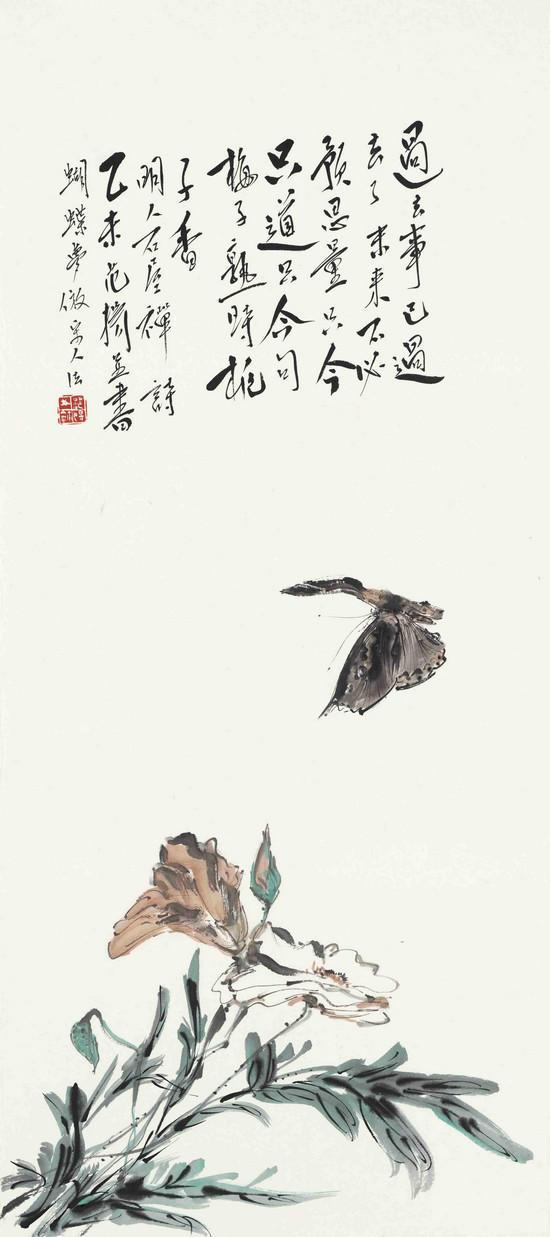 過去事已過
去了未来不必
預思量只今
只道只今句
梅子熟時梔
子香
明人石屋禅詩
乙未范擴並書
蝴蝶夢倣宋人法